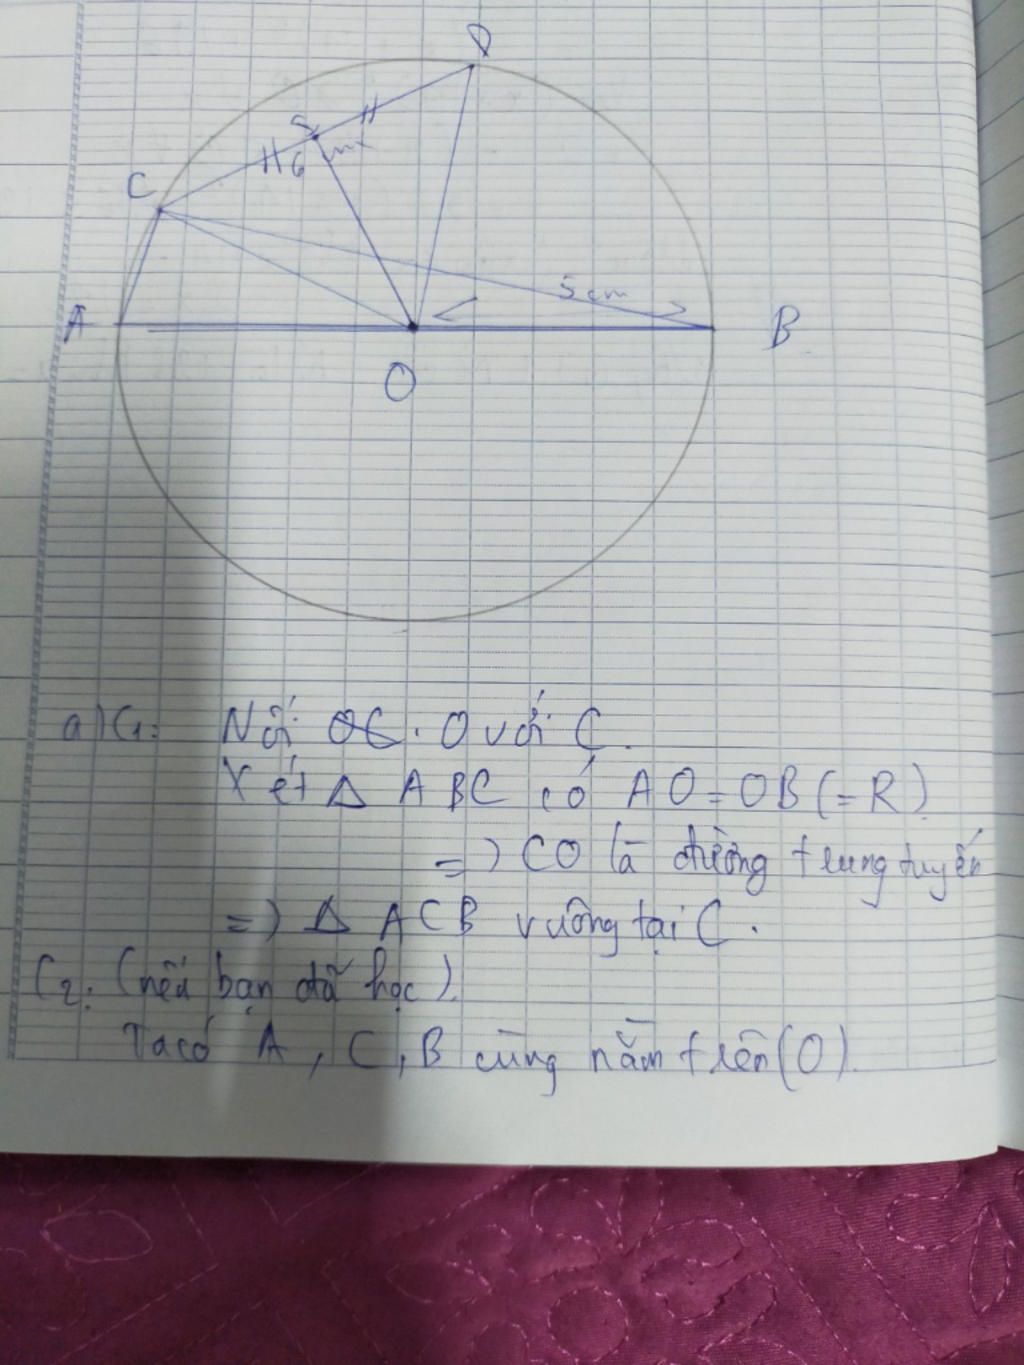 D
S
6 cm
C
5 cm
A
B
O
a) C1: Nối OC. O với C.
Xét Δ ABC có AO = OB (= R)
=) CO là đường trung tuyến
=) Δ ACB vuông tại C.
C2: (nếu bạn đã học).
Ta có A, C, B cùng nằm trên (O).